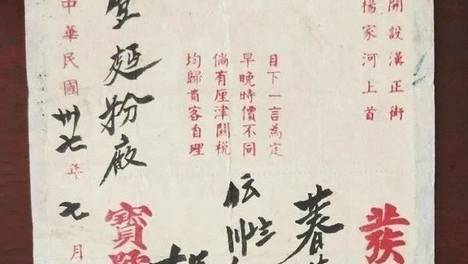 開設漢正街
楊家河上首
目下一言為定
早晚時價不同
倘有厘津關税
均歸貴客自理
寶號
麵粉廠
中華民國卅七年九月